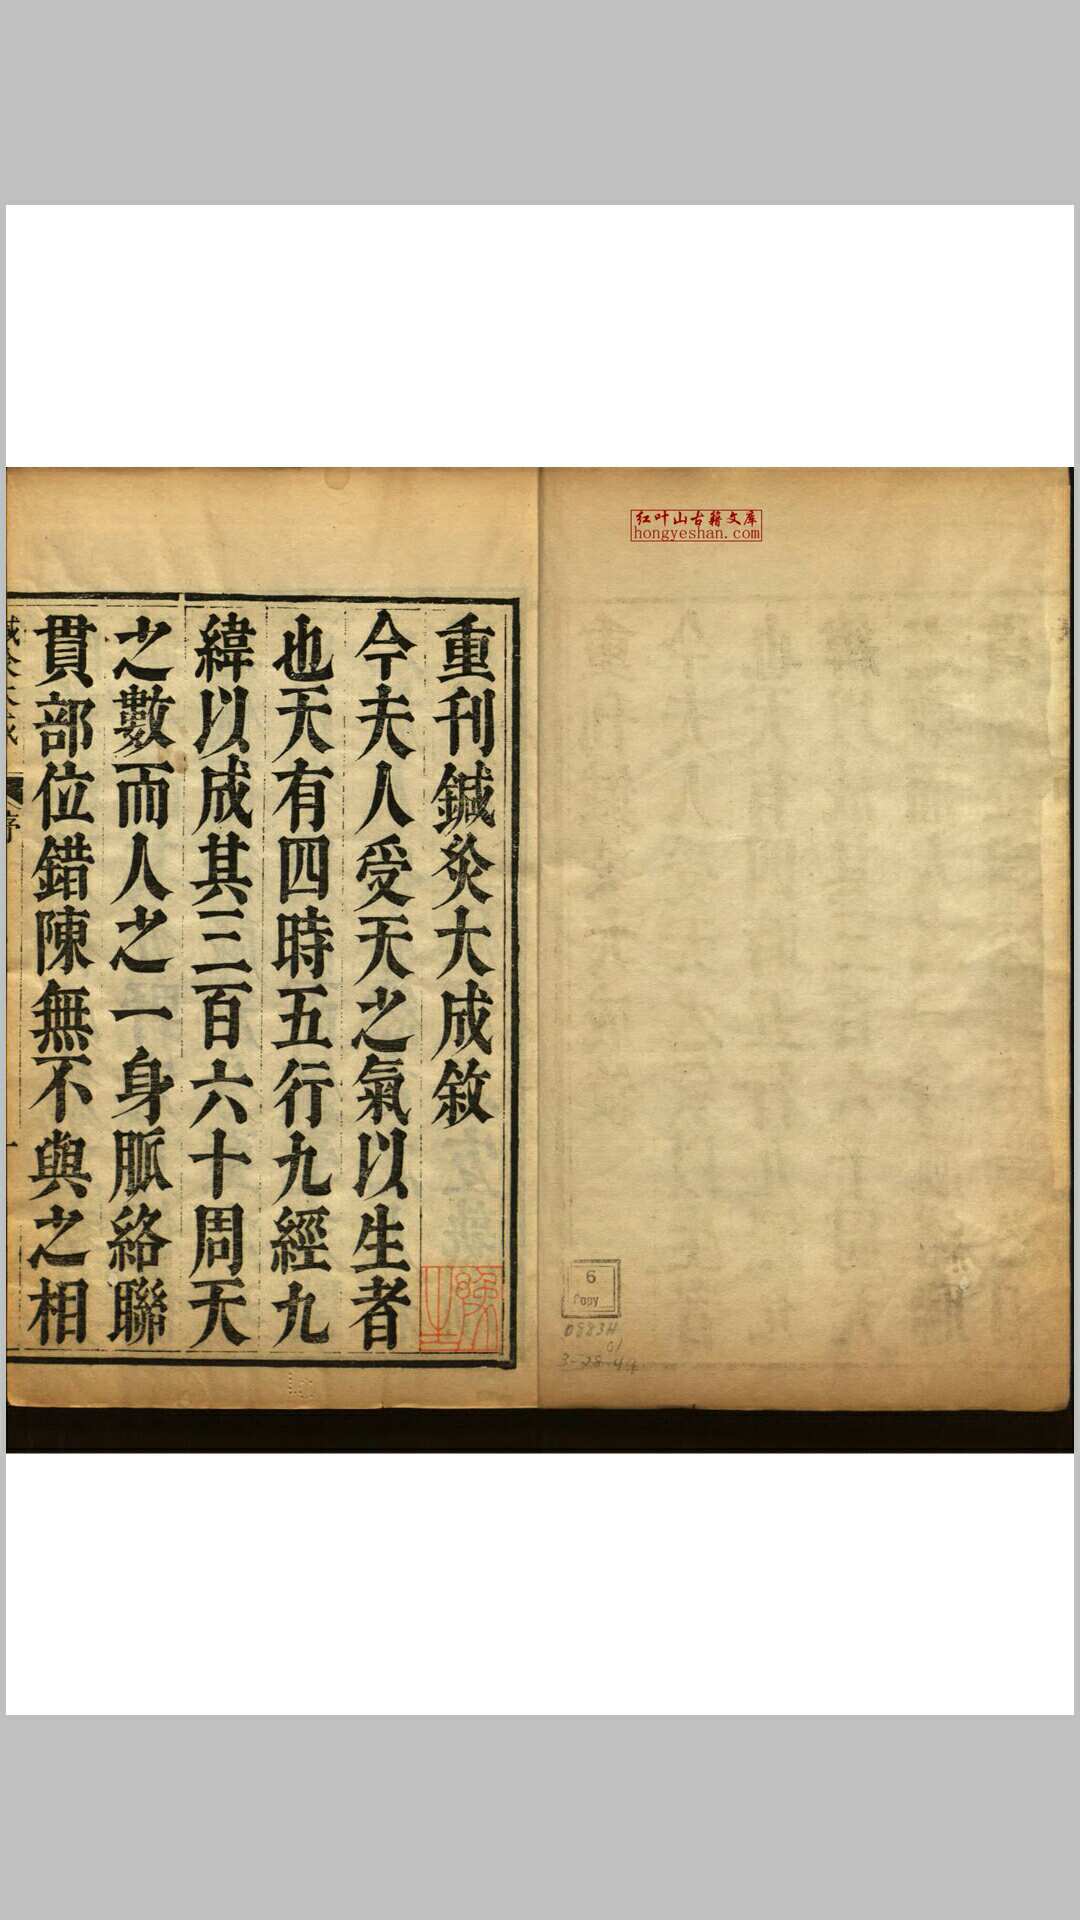 红叶山古籍文库
hongyeshan.com
重刊鍼灸大成敘
今夫人受天之氣以生者
也天有四時五行九經九
緯以成其三百六十周天
之數而人之一身脈絡聯
貫部位錯陳無不與之相
序
6
Copy
3-28-49